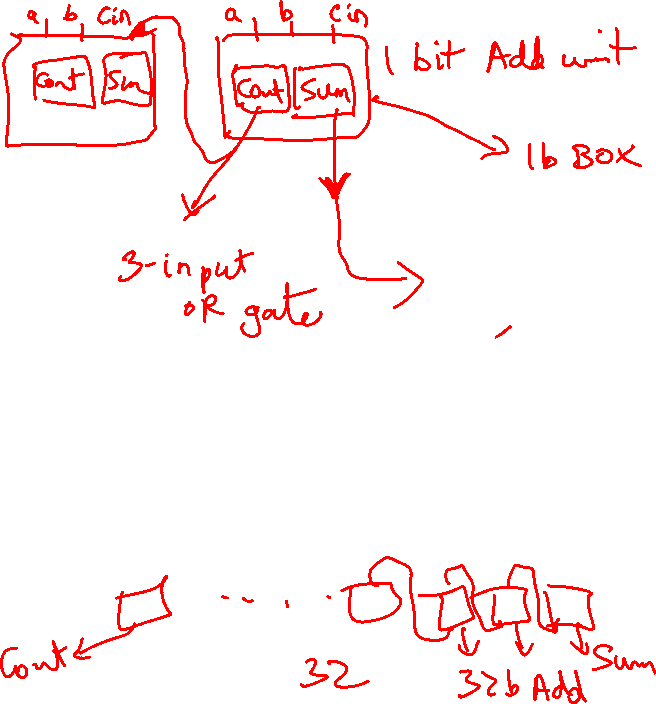 a b Cin
a b Cin
Cout Sum
Cout Sum
1 bit Add unit
1b BOX
3-input
OR gate
Cout
32
32b Add
Sum